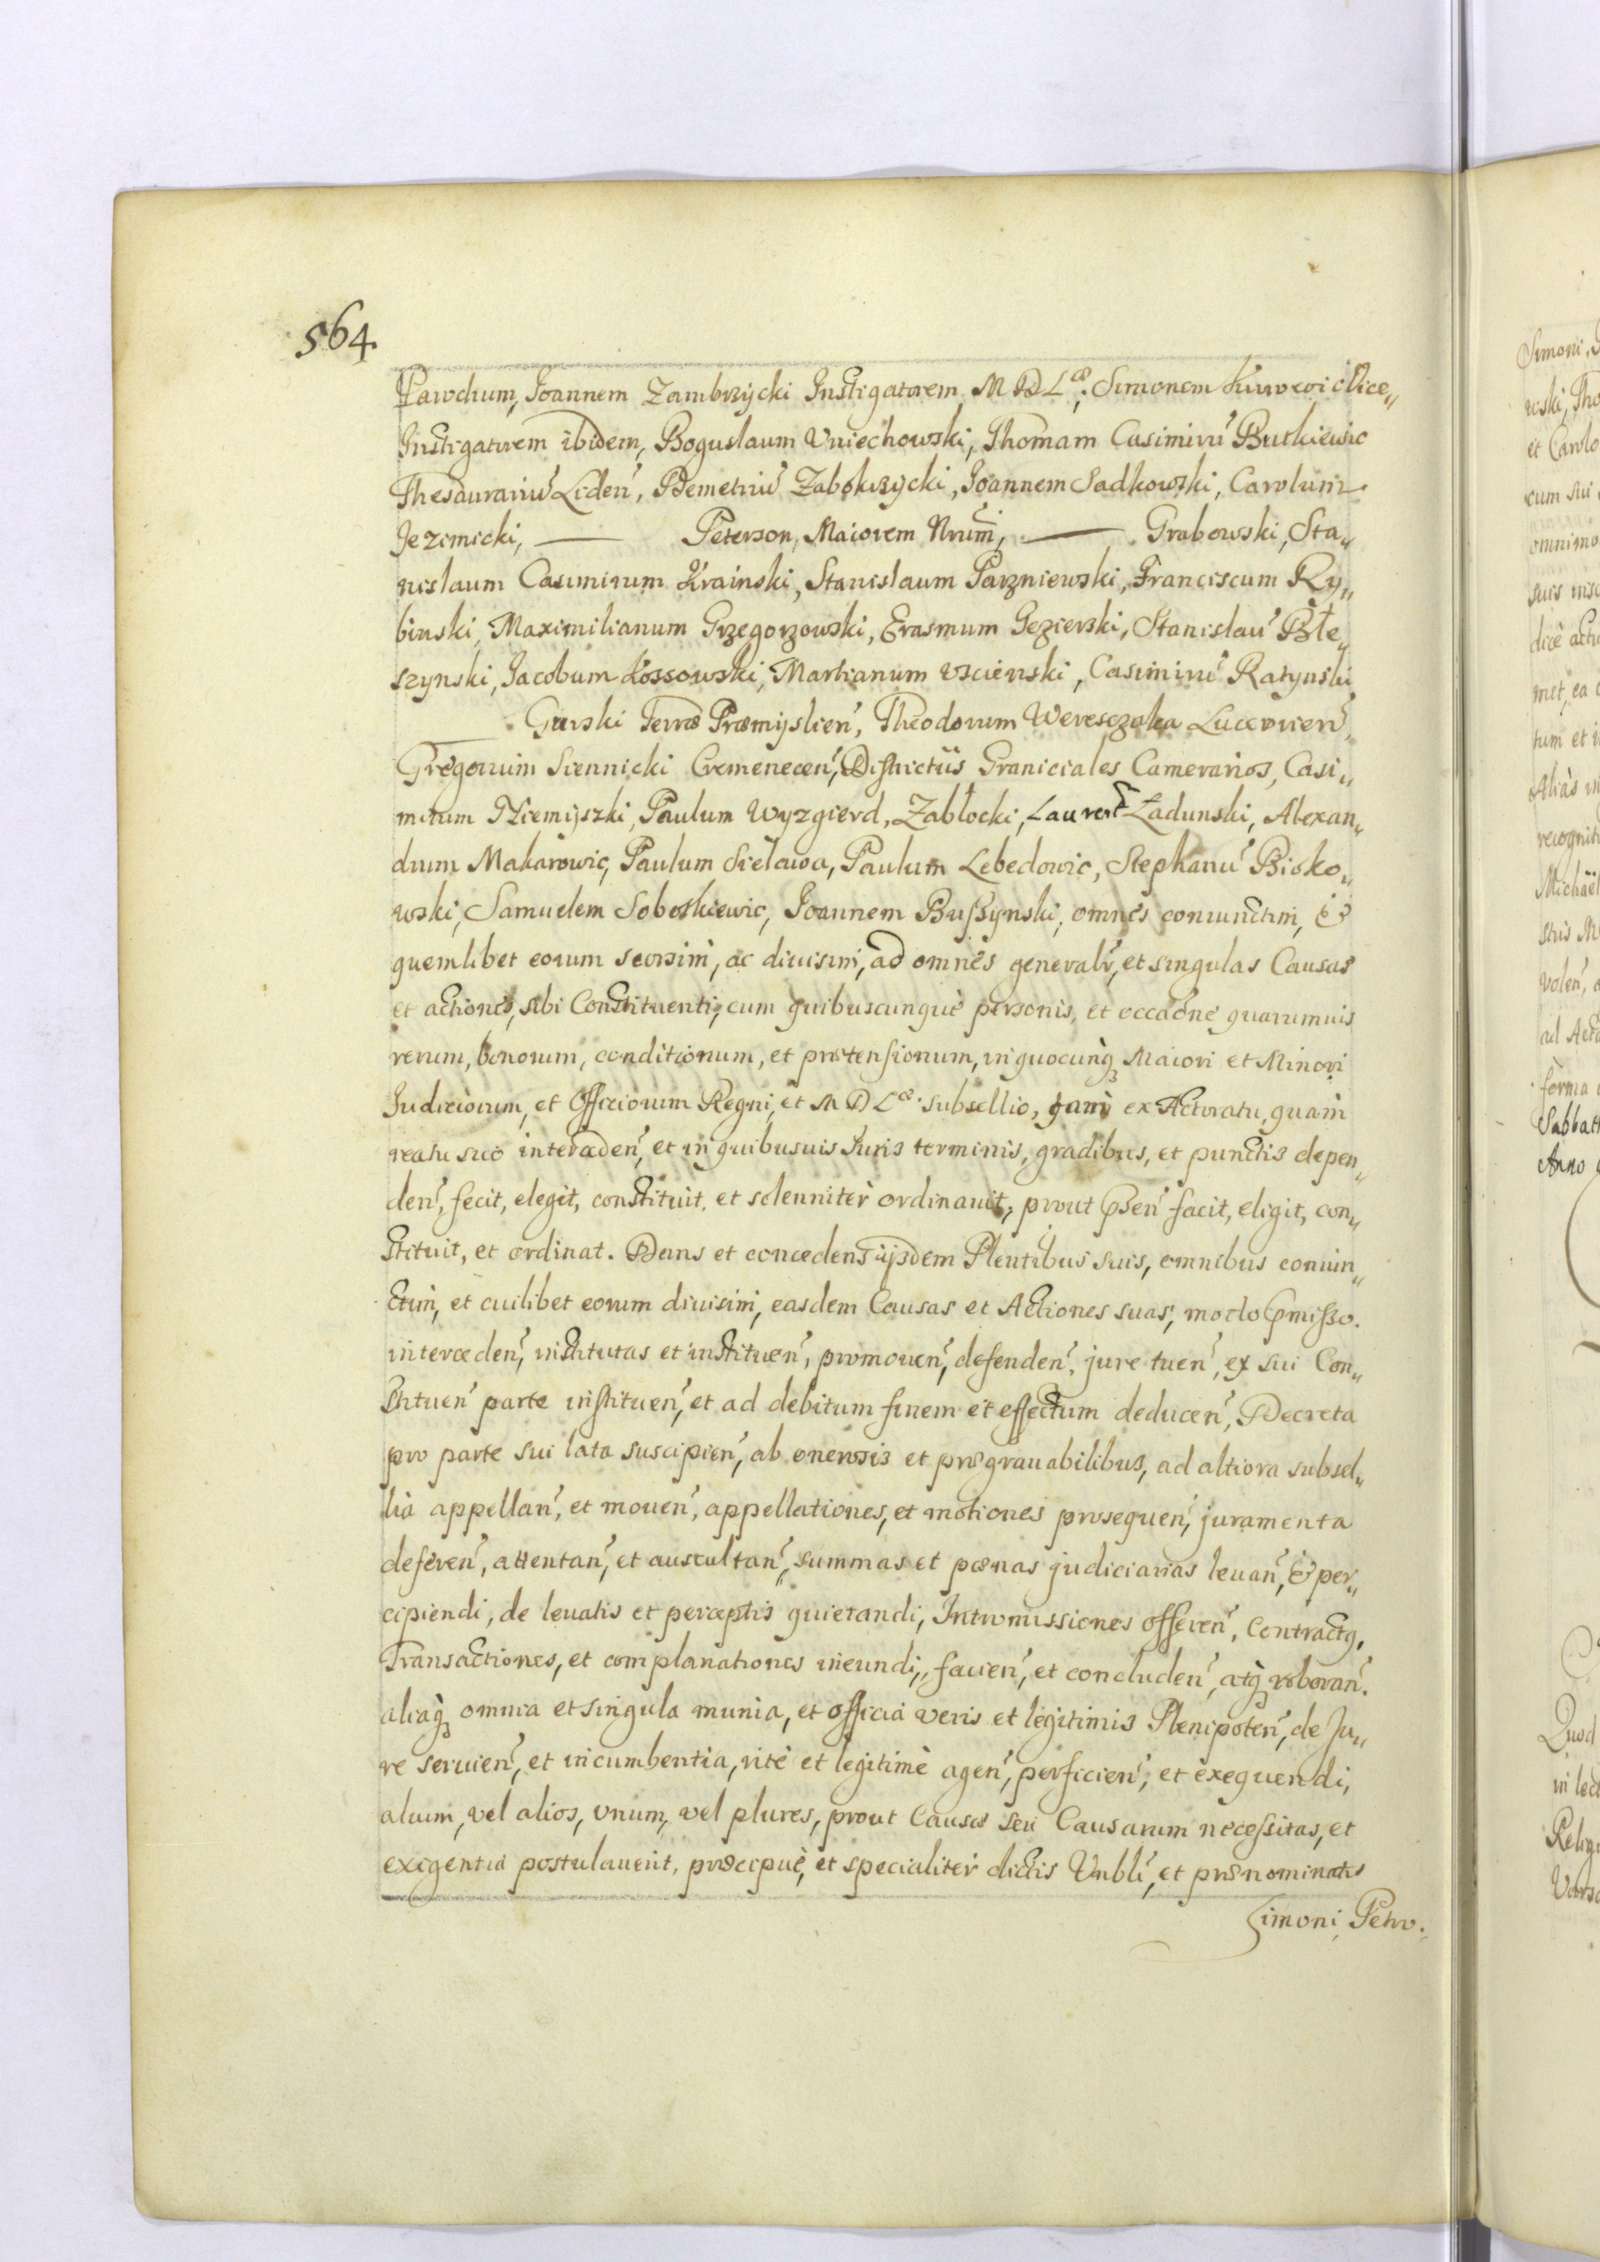 564.
Pawchum, Joannem Zambrzycki Instigatorem M D Læ, Simonem Vice„
Instigatorem ibidem, Boguslaum Vniechowski, Thomam Casimirũ Butkiewic
Thesaurariũ Liden̄, Demetriũ Zabokrzycki, Joannem Sadkowski, Carolum
Jezimicki, — Peterson, Maiorem Nrum̃, — Grabowski, Sta„
nislaum Casimirum Krainski, Stanislaum Parzniewski, Franciscum Ry„
binski, Maximilianum Grzegorzowski, Erasmum Gezierski, Stanislaũ Błe„
szynski, Jacobum Łossowski, Martianum Vscienski, Casimirũ Ratynski
— Gurski Terræ Præmyslien̄, Theodorum Weresczaka Luceorien̄,
Gregorium Siennicki Cremenecen̄, Districtus Graniciales Camerarios, Casi„
mirum Niemyszki, Paulum Wyzgierd, Zabłocki, Laurent̃ Ładunski, Alexan„
drum Makarowic, Paulum Sielawa, Paulum Lebedowic, Stephanũ Bisko„
wski, Samuelem Sobeskiewic, Joannem Buſzynski, omnes coniunctim, &
quemlibet eorum seorsim, ac diuisim, ad omnes generalr̃, et singulas Causas
et actiones, sibi Constituenti, cum quibuscunque personis, et occãone quarumuis
rerum, bonorum, conditionum, et prætensionum, in quocunq̃ Maiori et Minori
Judiciorum, et Officiorum Regni, et M D Læ subsellio, tam ex Actoratu, quam
reatu suo interceden̄, et in quibusuis Juris terminis, gradibus, et punctis depen„
den̄, fecit, elegit, constituit, et solenniter ordinauit, prout p̃sen̄ facit, eligit, con„
stituit, et ordinat. Dans et concedens ijsdem Plentibus suis, omnibus coniun„
ctim, et cuilibet eorum diuisim, easdem Causas et Actiones suas, modo p̃miſso
interceden̄, institutas et instituen̄, promouen̄, defenden̄, jure tuen̄, ex sui Con„
stituen̄ parte instituen̄, et ad debitum finem et effectum deducen̄, Decreta
pro parte sui lata suscipien̄, ab onerosis et prægrauabilibus, ad altiora subsel„
lia appellan̄, et mouen̄, appellationes, et motiones prosequen̄, juramenta
deferen̄, attentan̄, et auscultan̄, summas et pœnas judiciarias leuan̄, & per„
cipiendi, de leuatis et perceptis quietandi, Intromissiones offeren̄, Contractq,
Transactiones, et complanationes ineundi, facien̄, et concluden̄, atq̃ roboran̄.
aliaq̃ omnia et singula munia, et officia veris et legitimis Plenipoten̄, de Ju„
re seruien̄, et incumbentia, rite et legitimè agen̄, perficien̄, et exequendi,
alium, vel alios, vnum, vel plures, prout Causæ seu Causarum neceſsitas, et
exigentia postulauerit, præcipuè, et specialiter dictis Vnbli̇, et prænominatis
Simoni, Petro.